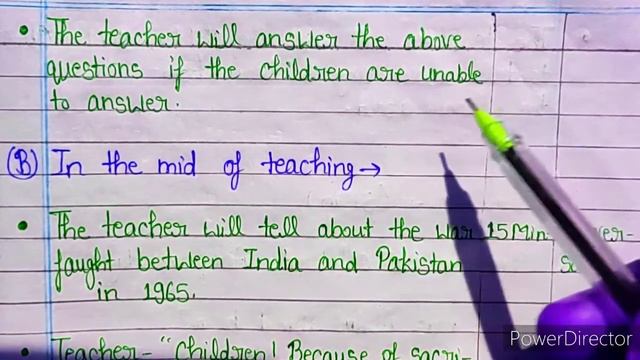 • The teacher will answer the above
questions if the children are unable
to answer.
(B) In the mid of teaching→
• The teacher will tell about the war 15Min. ver-
faught between India and Pakistan
in 1965.
• Teacher- "Children! Because of sacri-
PowerDirector